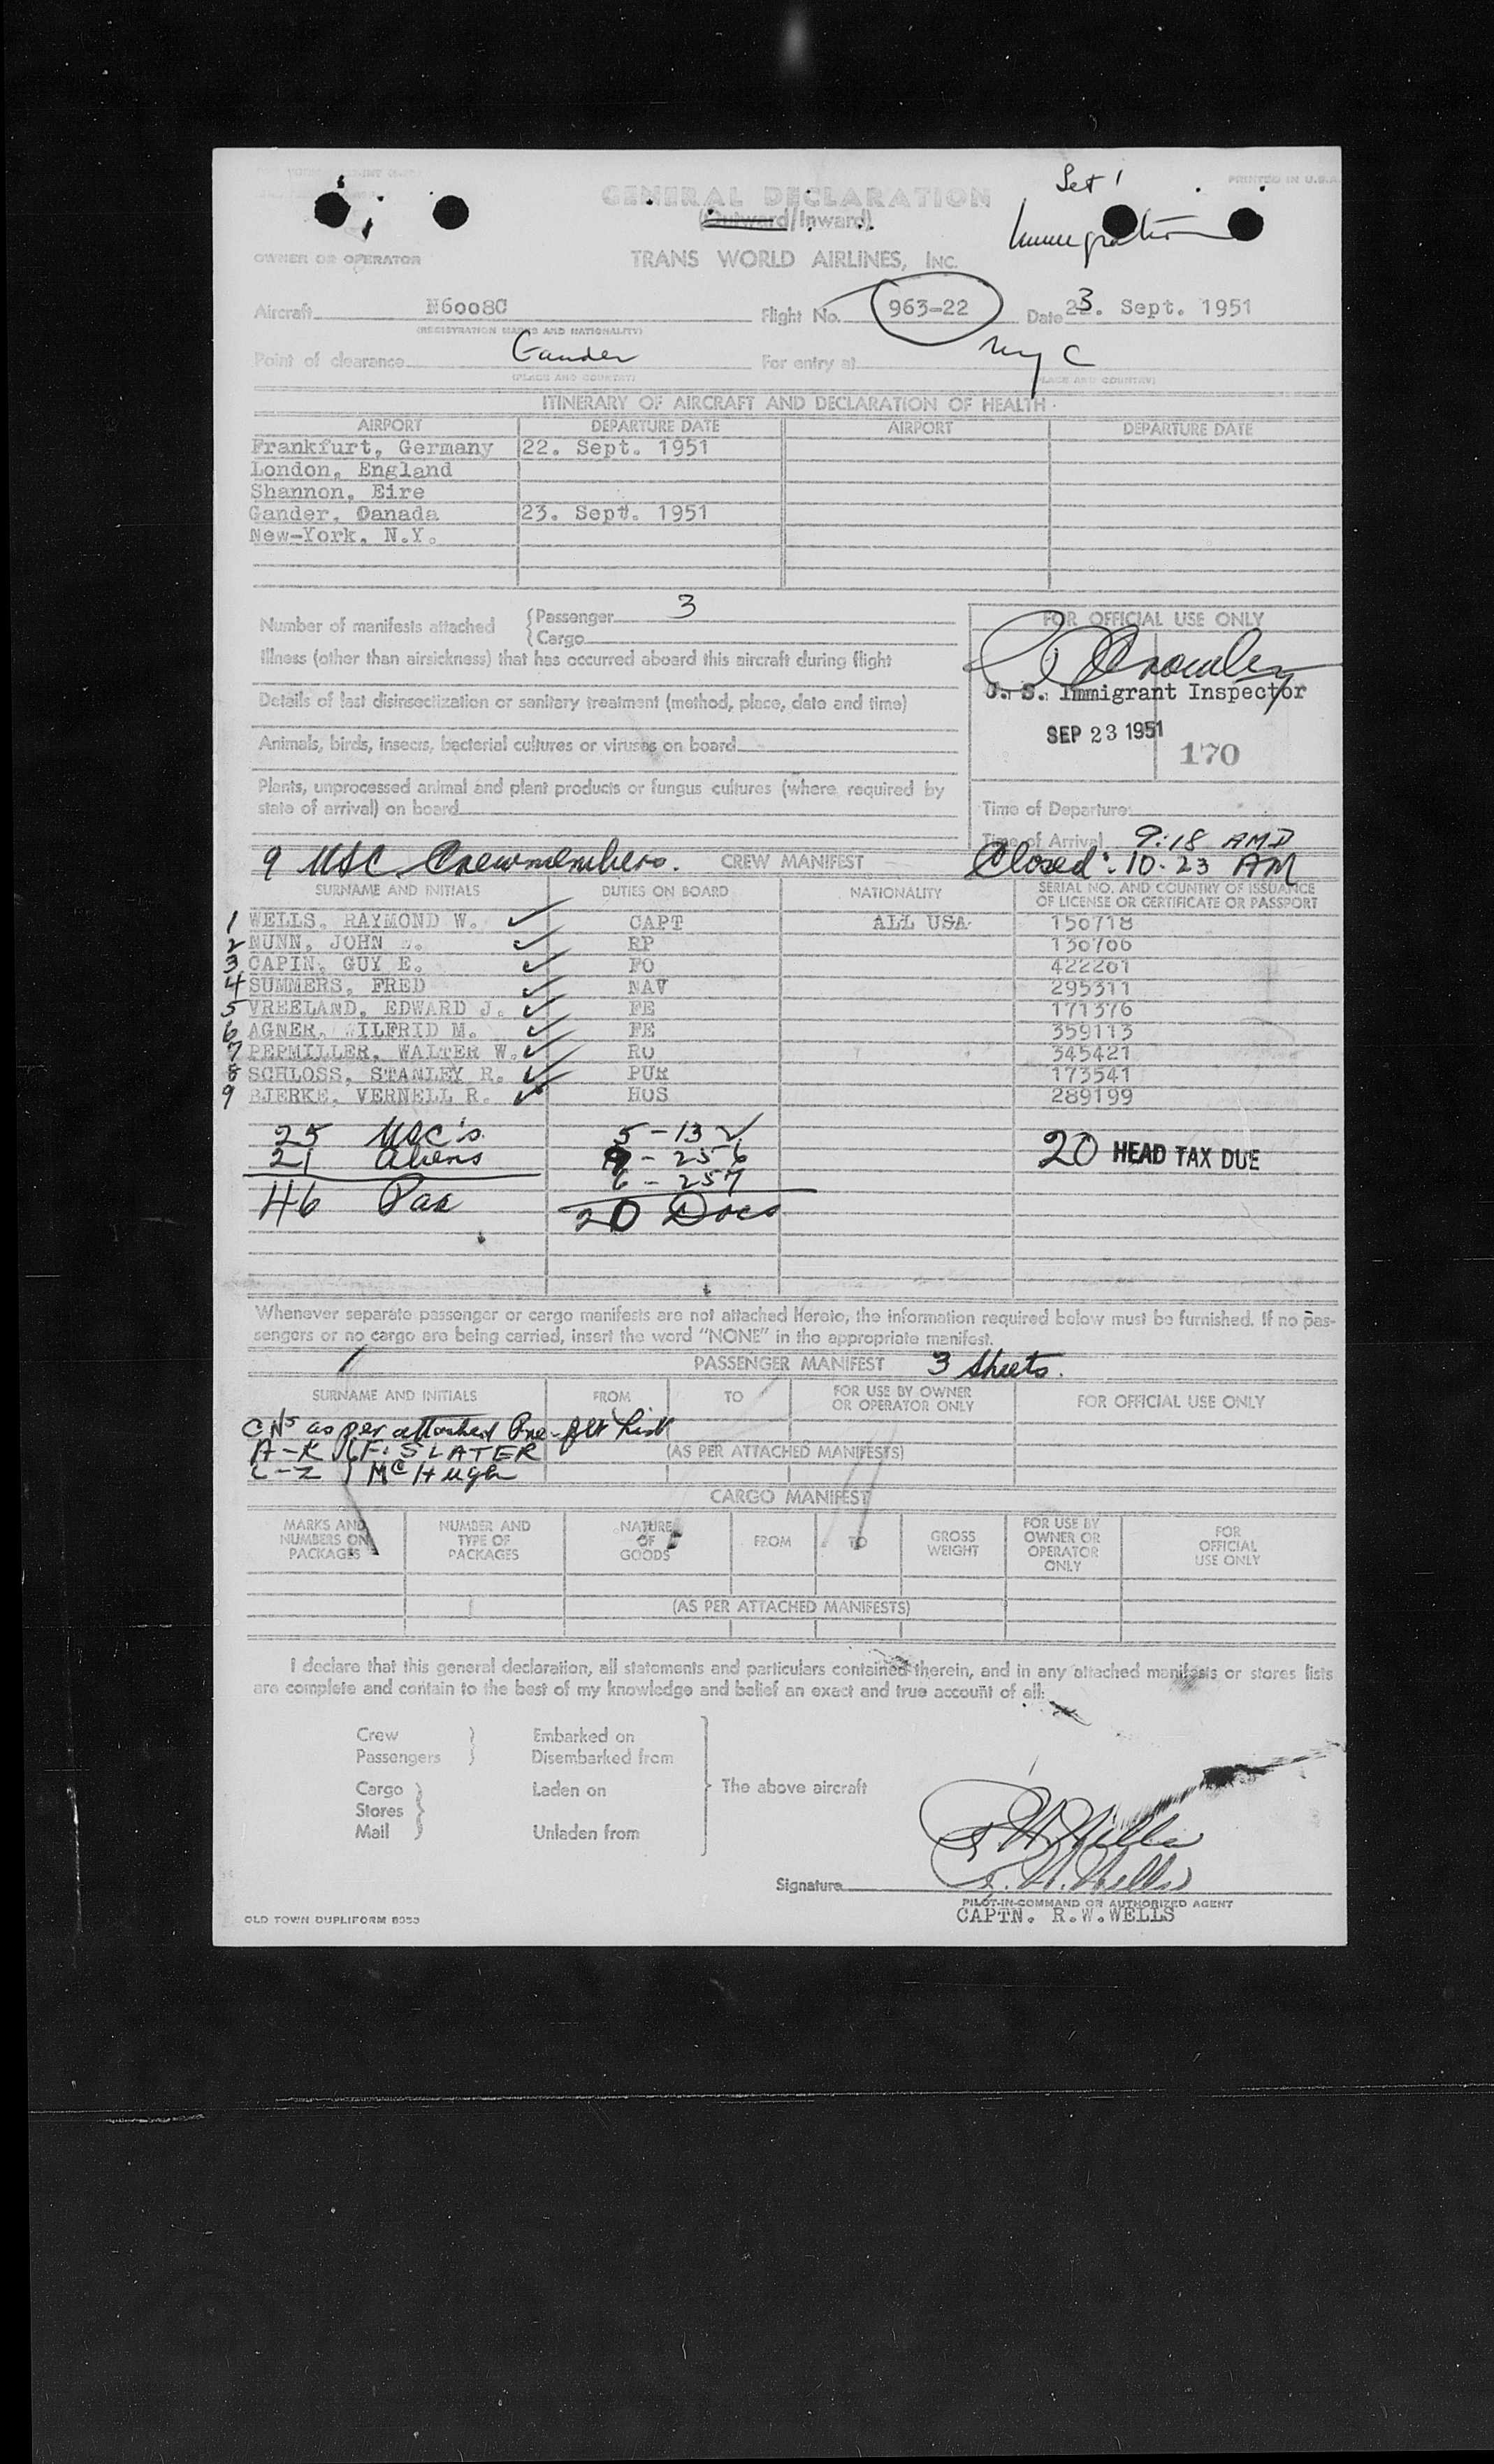 Set 1
PRINTED IN U.S.A.
GENERAL DECLARATION
(Outward/Inward)
Immigration
OWNER OR OPERATOR
TRANS WORLD AIRLINES, INC.
Aircraft N6008C Flight No. 963-22 Date 23. Sept. 1951
(REGISTRATION MARKS AND NATIONALITY)
Point of clearance Gander For entry at NYC
(PLACE AND COUNTRY) (PLACE AND COUNTRY)
ITINERARY OF AIRCRAFT AND DECLARATION OF HEALTH
AIRPORT DEPARTURE DATE AIRPORT DEPARTURE DATE
Frankfurt, Germany 22. Sept. 1951
London, England
Shannon, Eire
Gander, Canada 23. Sept. 1951
New-York, N.Y.
Number of manifests attached {Passenger 3
{Cargo
FOR OFFICIAL USE ONLY
Illness (other than airsickness) that has occurred aboard this aircraft during flight
U. S. Immigrant Inspector
Details of last disinsectization or sanitary treatment (method, place, date and time)
SEP 23 1951
Animals, birds, insects, bacterial cultures or viruses on board
170
Plants, unprocessed animal and plant products or fungus cultures (where required by
state of arrival) on board
Time of Departure
Time of Arrival 9:18 AM
9 USC Crewmembers. CREW MANIFEST Closed: 10-23 AM
SURNAME AND INITIALS DUTIES ON BOARD NATIONALITY SERIAL NO. AND COUNTRY OF ISSUANCE
OF LICENSE OR CERTIFICATE OR PASSPORT
1 WELLS, RAYMOND W. ✓ CAPT ALL USA 156718
2 NUNN, JOHN ✓ RP 136706
3 CAPIN, GUY E. ✓ FO 422261
4 SUMMERS, FRED ✓ NAV 295311
5 VREELAND, EDWARD J. ✓ FE 171376
6 AGNER, WILFRID M. ✓ FE 359113
7 PEPMILLER, WALTER W. ✓ RO 345421
8 SCHLOSS, STANLEY R. ✓ PUR 173541
9 BJERKE, VERNELL R. ✓ HOS 289199
25 USC's 5 - 132
21 Aliens 9 - 256
6 - 257
20 HEAD TAX DUE
46 Pax 20 Docs
Whenever separate passenger or cargo manifests are not attached hereto, the information required below must be furnished. If no pas-
sengers or no cargo are being carried, insert the word "NONE" in the appropriate manifest.
PASSENGER MANIFEST 3 sheets.
SURNAME AND INITIALS FROM TO FOR USE BY OWNER
OR OPERATOR ONLY FOR OFFICIAL USE ONLY
CNs as per attached Pre-flt List
A-K F. SLATER (AS PER ATTACHED MANIFESTS)
L-Z McHugh
CARGO MANIFEST
MARKS AND
NUMBERS ON
PACKAGES
NUMBER AND
TYPE OF
PACKAGES
NATURE
OF
GOODS
FROM
TO
GROSS
WEIGHT
FOR USE BY
OWNER OR
OPERATOR
ONLY
FOR
OFFICIAL
USE ONLY
(AS PER ATTACHED MANIFESTS)
I declare that this general declaration, all statements and particulars contained therein, and in any attached manifests or stores lists
are complete and contain to the best of my knowledge and belief an exact and true account of all:
Crew } Embarked on
Passengers } Disembarked from
Cargo } Laden on } The above aircraft
Stores }
Mail } Unladen from
R W Wells
Signature R. W. Wells
PILOT-IN-COMMAND OR AUTHORIZED AGENT
OLD TOWN DUPLIFORM CAPTN. R.W.WELLS